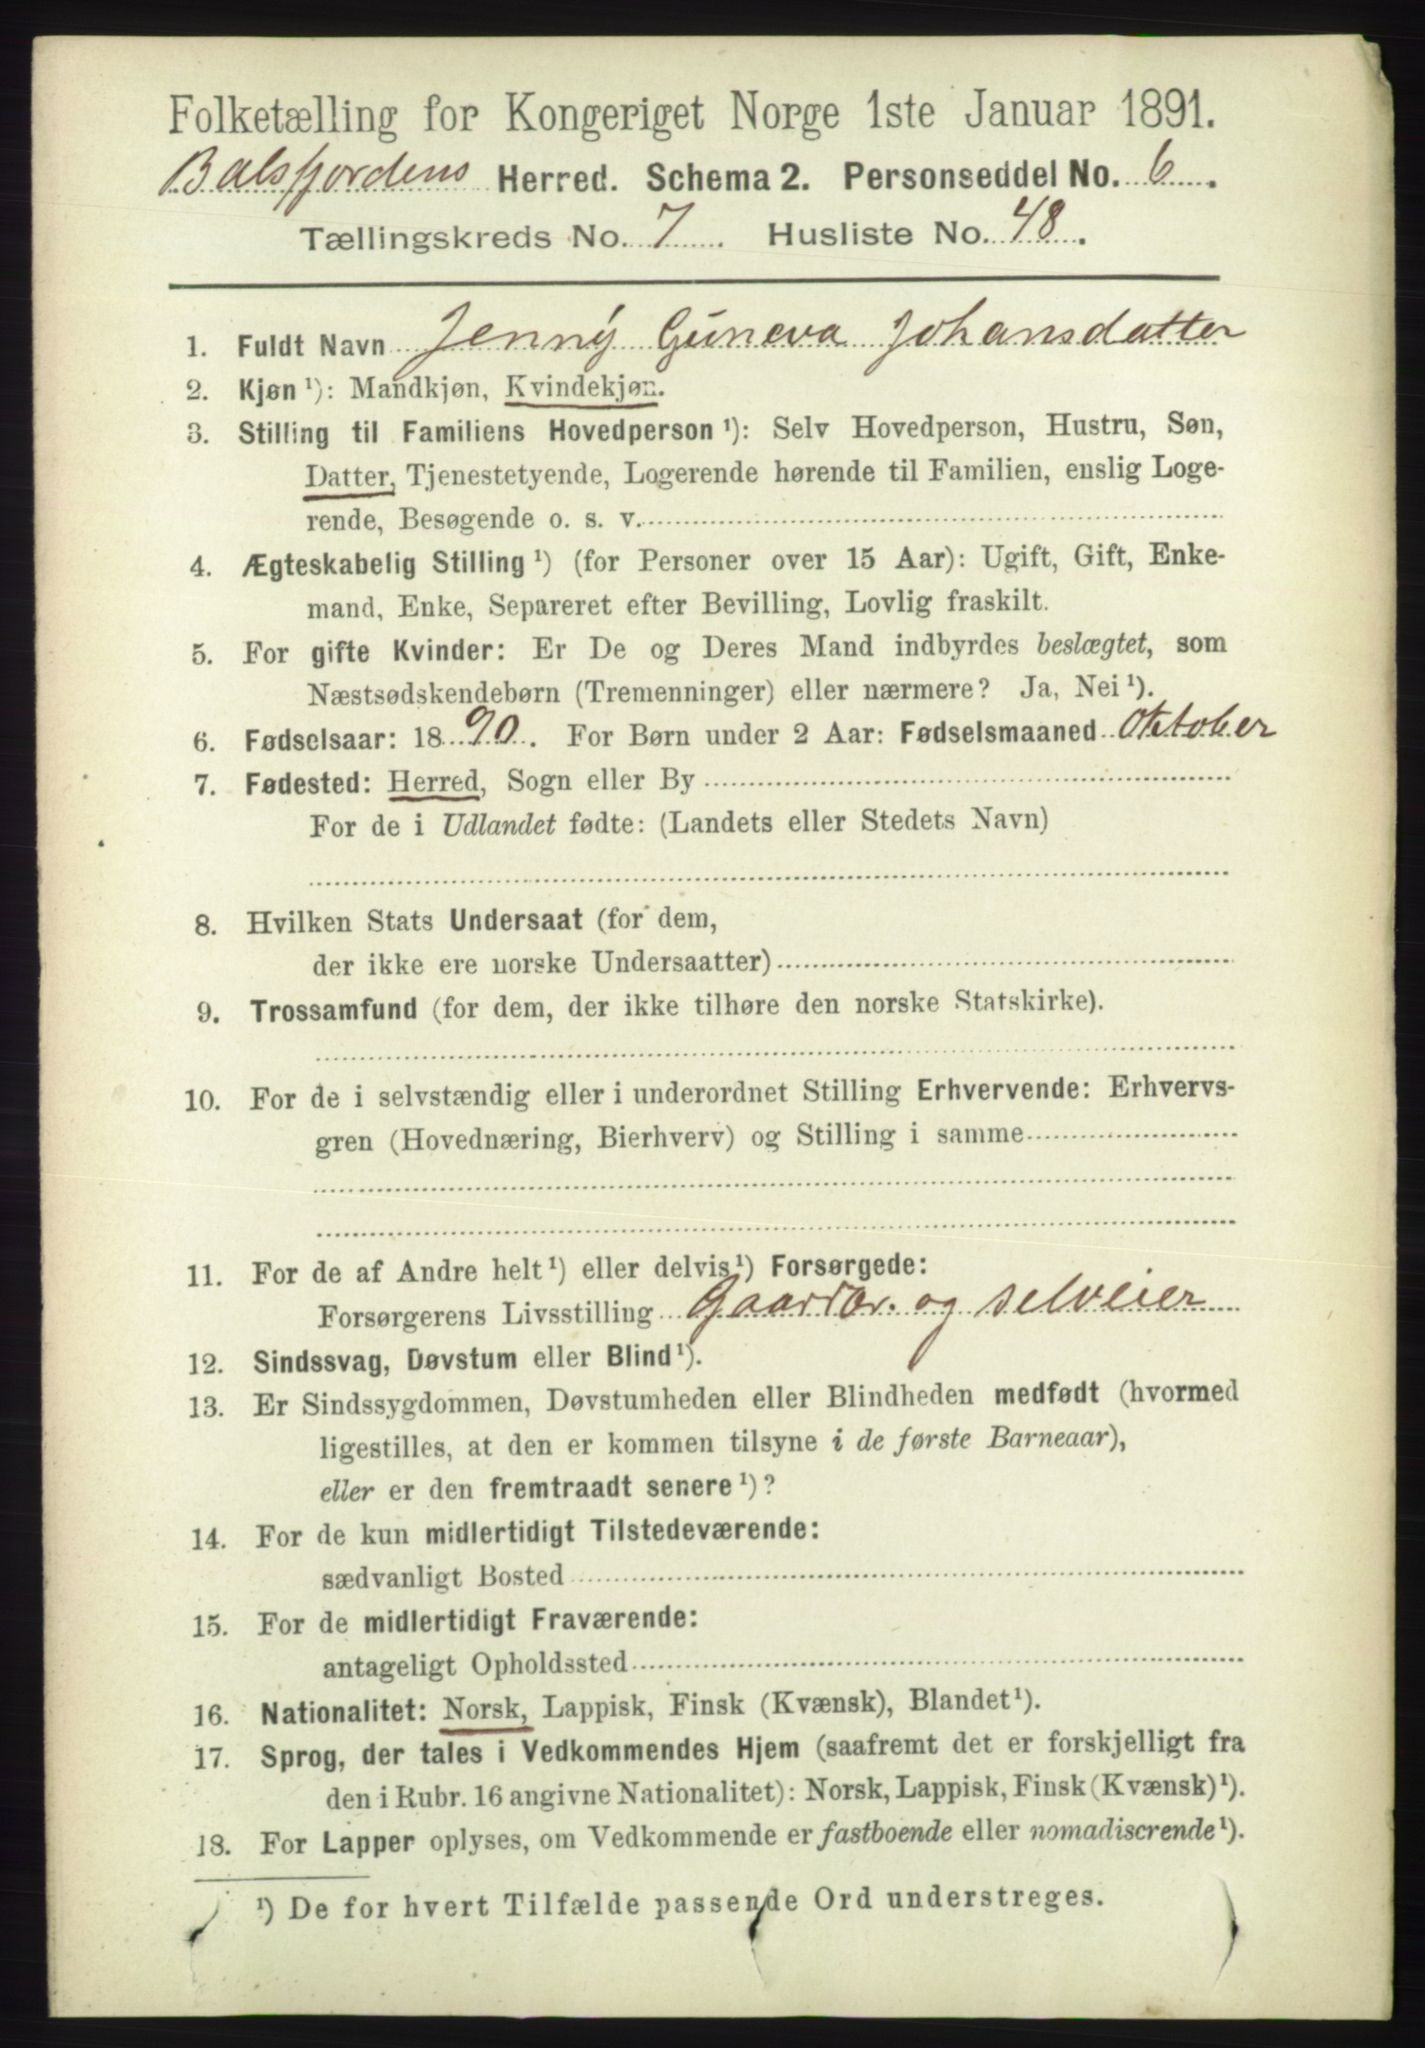 Folketælling for Kongeriget Norge 1ste Januar 1891.
Balsfjordens Herred. Schema 2. Personseddel No. 6.
Tællingskreds No. 7. Husliste No. 48.
1. Fuldt Navn Jenny Guneva Johansdatter
2. Kjøn ¹): Mandkjøn, Kvindekjøn.
3. Stilling til Familiens Hovedperson ¹): Selv Hovedperson, Hustru, Søn,
Datter, Tjenestetyende, Logerende hørende til Familien, enslig Loge-
rende, Besøgende o. s. v.
4. Ægteskabelig Stilling ¹) (for Personer over 15 Aar): Ugift, Gift, Enke-
mand, Enke, Separeret efter Bevilling, Lovlig fraskilt.
5. For gifte Kvinder: Er De og Deres Mand indbyrdes beslægtet, som
Næstsødskendebørn (Tremenninger) eller nærmere? Ja, Nei ¹).
6. Fødselsaar: 1890. For Børn under 2 Aar: Fødselsmaaned Oktober
7. Fødested: Herred, Sogn eller By
For de i Udlandet fødte: (Landets eller Stedets Navn)
8. Hvilken Stats Undersaat (for dem,
der ikke ere norske Undersaatter)
9. Trossamfund (for dem, der ikke tilhøre den norske Statskirke).
10. For de i selvstændig eller i underordnet Stilling Erhvervende: Erhvervs-
gren (Hovednæring, Bierhverv) og Stilling i samme
11. For de af Andre helt ¹) eller delvis ¹) Forsørgede:
Forsørgerens Livsstilling Gaardbr. og selveier
12. Sindssvag, Døvstum eller Blind ¹).
13. Er Sindssygdommen, Døvstumheden eller Blindheden medfødt (hvormed
ligestilles, at den er kommen tilsyne i de første Barneaar),
eller er den fremtraadt senere ¹)?
14. For de kun midlertidigt Tilstedeværende:
sædvanligt Bosted
15. For de midlertidigt Fraværende:
antageligt Opholdssted
16. Nationalitet: Norsk, Lappisk, Finsk (Kvænsk), Blandet ¹).
17. Sprog, der tales i Vedkommendes Hjem (saafremt det er forskjelligt fra
den i Rubr. 16 angivne Nationalitet): Norsk, Lappisk, Finsk (Kvænsk) ¹).
18. For Lapper oplyses, om Vedkommende er fastboende eller nomadiserende ¹).
¹) De for hvert Tilfælde passende Ord understreges.